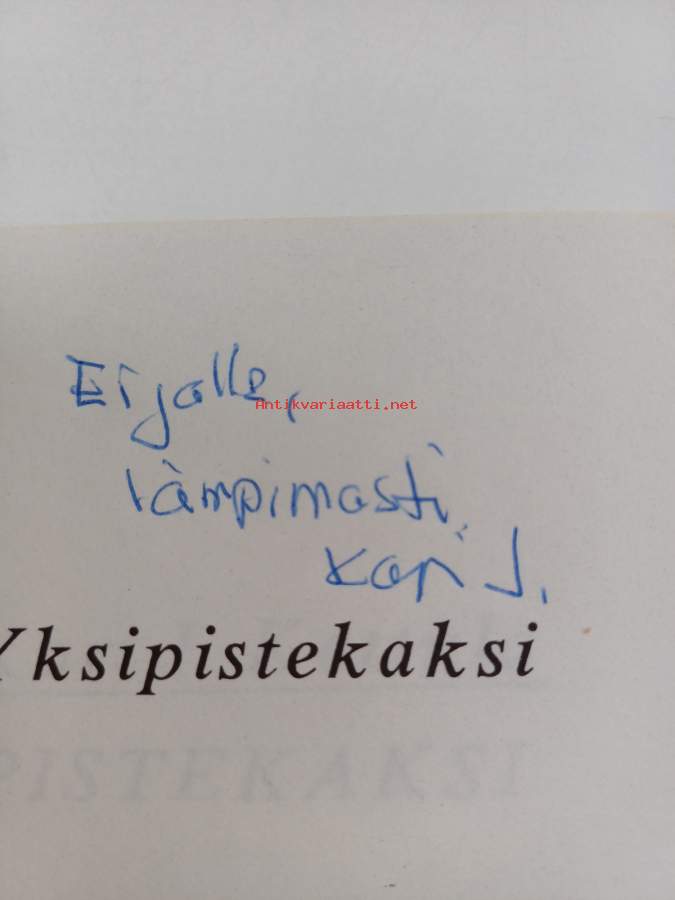 Eijalle,
Antikvariaatti.net
lämpimästi,
Kari J.
Yksipistekaksi
PISTEKAKSI